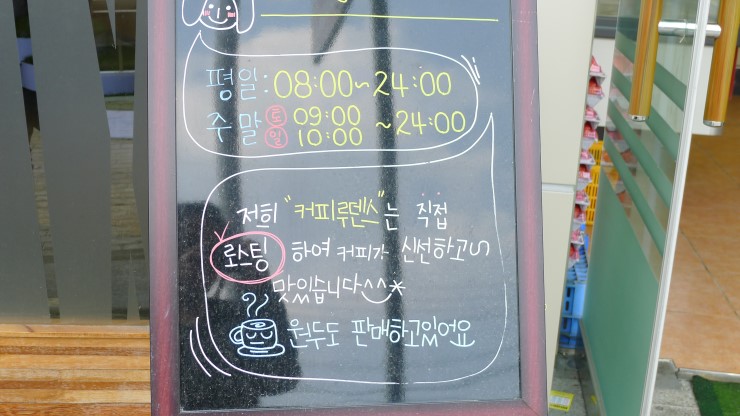 평일: 08:00~24:00
주말 토 09:00 일 10:00 ~24:00
저희 "커피루덴스"는 직접
로스팅 하여 커피가 신선하고~
맛있습니다^^*
원두도 판매하고있어요